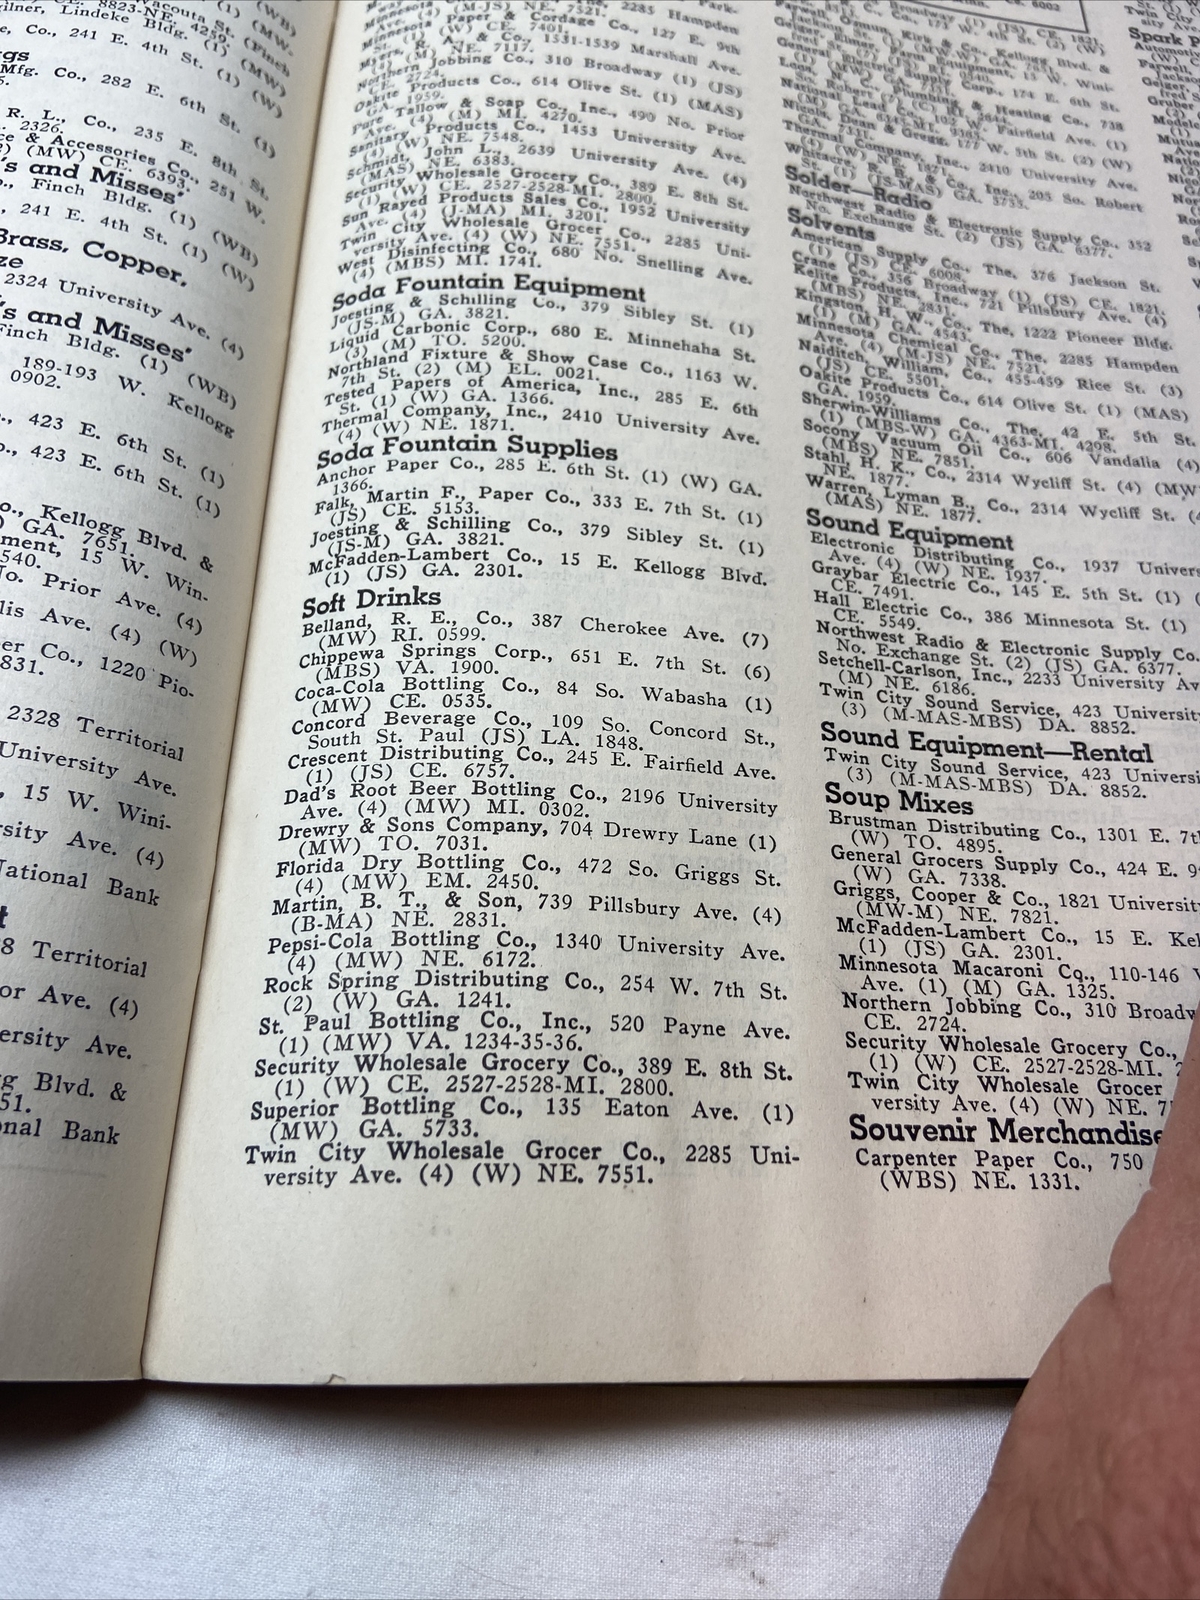 8823-NE. 4259.
ilner, Lindeke Bldg. (1)
Co., 241 E. 4th St. (1) (W)
Mfg. Co., 282 E. 6th St. (1)
R. L., Co., 235 E. 8th St.
2326.
e & Accessories Co., 251 W.
(MW) CE. 6393.
's and Misses'
Finch Bldg. (1) (WB)
241 E. 4th St. (1) (W)
Brass, Copper,
ze
2324 University Ave. (4)
's and Misses'
Finch Bldg. (1) (WB)
189-193 W. Kellogg
0902.
423 E. 6th St. (1)
423 E. 6th St. (1)
o., Kellogg Blvd. &
GA. 7651.
ment, 15 W. Win-
540.
No. Prior Ave. (4)
lis Ave. (4) (W)
er Co., 1220 Pio-
831.
2328 Territorial
University Ave.
15 W. Wini-
rsity Ave. (4)
National Bank
t
8 Territorial
or Ave. (4)
ersity Ave.
g Blvd. &
51.
onal Bank
(M-JS) NE. 7521.
Paper & Cordage Co., 127 E. 9th
St. (1) (W) CE. 7401.
& Co., 1531-1539 Marshall Ave.
NE. 7117.
Northern Jobbing Co., 310 Broadway (1) (JS)
2724.
Oakite Products Co., 614 Olive St. (1) (MAS)
GA. 1959.
Pure Tallow & Soap Co., Inc., 490 No. Prior
Ave. (4) (M) MI. 4270.
Sanitary Products Co., 1453 University Ave.
(4) (W) NE. 7548.
Schmidt, John L., 2639 University Ave. (4)
(MAS) NE. 6383.
Security Wholesale Grocery Co., 389 E. 8th St.
(1) (W) CE. 2527-2528-MI. 2800.
Sun Rayed Products Sales Co., 1952 University
Ave. (4) (J-MA) MI. 3201.
Twin City Wholesale Grocer Co., 2285 Uni-
versity Ave. (4) (W) NE. 7551.
West Disinfecting Co., 680 No. Snelling Ave.
(4) (MBS) MI. 1741.
Soda Fountain Equipment
Joesting & Schilling Co., 379 Sibley St. (1)
(JS-M) GA. 3821.
Liquid Carbonic Corp., 680 E. Minnehaha St.
(3) (M) TO. 5200.
Northland Fixture & Show Case Co., 1163 W.
7th St. (2) (M) EL. 0021.
Tested Papers of America, Inc., 285 E. 6th
St. (1) (W) GA. 1366.
Thermal Company, Inc., 2410 University Ave.
(4) (W) NE. 1871.
Soda Fountain Supplies
Anchor Paper Co., 285 E. 6th St. (1) (W) GA.
1366.
Falk, Martin F., Paper Co., 333 E. 7th St. (1)
(JS) CE. 5153.
Joesting & Schilling Co., 379 Sibley St. (1)
(JS-M) GA. 3821.
McFadden-Lambert Co., 15 E. Kellogg Blvd.
(1) (JS) GA. 2301.
Soft Drinks
Belland, R. E., Co., 387 Cherokee Ave. (7)
(MW) RI. 0599.
Chippewa Springs Corp., 651 E. 7th St. (6)
(MBS) VA. 1900.
Coca-Cola Bottling Co., 84 So. Wabasha (1)
(MW) CE. 0535.
Concord Beverage Co., 109 So. Concord St.,
South St. Paul (JS) LA. 1848.
Crescent Distributing Co., 245 E. Fairfield Ave.
(1) (JS) CE. 6757.
Dad's Root Beer Bottling Co., 2196 University
Ave. (4) (MW) MI. 0302.
Drewry & Sons Company, 704 Drewry Lane (1)
(MW) TO. 7031.
Florida Dry Bottling Co., 472 So. Griggs St.
(4) (MW) EM. 2450.
Martin, B. T., & Son, 739 Pillsbury Ave. (4)
(B-MA) NE. 2831.
Pepsi-Cola Bottling Co., 1340 University Ave.
(4) (MW) NE. 6172.
Rock Spring Distributing Co., 254 W. 7th St.
(2) (W) GA. 1241.
St. Paul Bottling Co., Inc., 520 Payne Ave.
(1) (MW) VA. 1234-35-36.
Security Wholesale Grocery Co., 389 E. 8th St.
(1) (W) CE. 2527-2528-MI. 2800.
Superior Bottling Co., 135 Eaton Ave. (1)
(MW) GA. 5733.
Twin City Wholesale Grocer Co., 2285 Uni-
versity Ave. (4) (W) NE. 7551.
Thermal Company, Inc., 2410 University Ave.
(4) (W) NE. 1871.
Whitacre, R. B., & Co., Inc., 205 So. Robert
St. (1) (JS-MAS) GA. 5735.
Solder—Radio
Northwest Radio & Electronic Supply Co., 352
No. Exchange St. (2) (JS) GA. 6377.
Solvents
American Supply Co., The, 376 Jackson St.
(1) (JS) CE. 6008.
Crane Co., 356 Broadway (1) (JS) CE. 1821.
Kelite Products, Inc., 721 Pillsbury Ave. (4)
(MBS) NE. 2831.
Kingston, H. W., Co., The, 1222 Pioneer Bldg.
(1) (M) GA. 4543.
Minnesota Chemical Co., The, 2285 Hampden
Ave. (4) (M-JS) NE. 7521.
Naiditch, William, Co., 455-459 Rice St. (3)
(JS) CE. 5501.
Oakite Products Co., 614 Olive St. (1) (MAS)
GA. 1959.
Sherwin-Williams Co., The, 42 E. 5th St.
(1) (MBS-W) GA. 4363-MI. 4298.
Socony Vacuum Oil Co., 606 Vandalia (4)
(MBS) NE. 7851.
Stahl, H. K., Co., 2314 Wycliff St. (4) (MW
NE. 1877.
Warren, Lyman B., Co., 2314 Wycliff St. (4
(MAS) NE. 1877.
Sound Equipment
Electronic Distributing Co., 1937 Univers
Ave. (4) (W) NE. 1937.
Graybar Electric Co., 145 E. 5th St. (1) (
CE. 7491.
Hall Electric Co., 386 Minnesota St. (1)
CE. 5549.
Northwest Radio & Electronic Supply Co.
No. Exchange St. (2) (JS) GA. 6377.
Setchell-Carlson, Inc., 2233 University Av
(M) NE. 6186.
Twin City Sound Service, 423 University
(3) (M-MAS-MBS) DA. 8852.
Sound Equipment—Rental
Twin City Sound Service, 423 Universi
(3) (M-MAS-MBS) DA. 8852.
Soup Mixes
Brustman Distributing Co., 1301 E. 7th
(W) TO. 4895.
General Grocers Supply Co., 424 E. 9
(W) GA. 7338.
Griggs, Cooper & Co., 1821 Universit
(MW-M) NE. 7821.
McFadden-Lambert Co., 15 E. Kel
(1) (JS) GA. 2301.
Minnesota Macaroni Co., 110-146
Ave. (1) (M) GA. 1325.
Northern Jobbing Co., 310 Broadw
CE. 2724.
Security Wholesale Grocery Co.,
(1) (W) CE. 2527-2528-MI. 2
Twin City Wholesale Grocer
versity Ave. (4) (W) NE. 7
Souvenir Merchandise
Carpenter Paper Co., 750
(WBS) NE. 1331.
Spark P